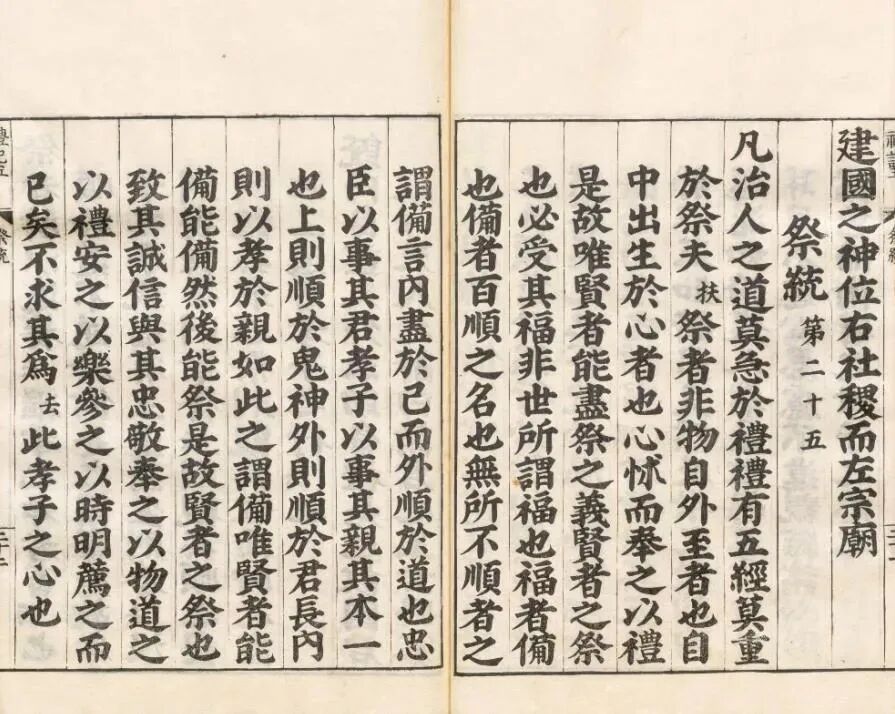 建國之神位右社稷而左宗廟
祭統第二十五
凡治人之道莫急於禮禮有五經莫重
於祭夫扶祭者非物自外至者也自
中出生於心者也心怵而奉之以禮
是故唯賢者能盡祭之義賢者之祭
也必受其福非世所謂福也福者備
也備者百順之名也無所不順者之
謂備言內盡於己而外順於道也忠
臣以事其君孝子以事其親其本一
也上則順於鬼神外則順於君長內
則以孝於親如此之謂備唯賢者能
備能備然後能祭是故賢者之祭也
致其誠信與其忠敬奉之以物道之
以禮安之以樂參之以時明薦之而
已矣不求其爲去此孝子之心也
禮記五
祭統